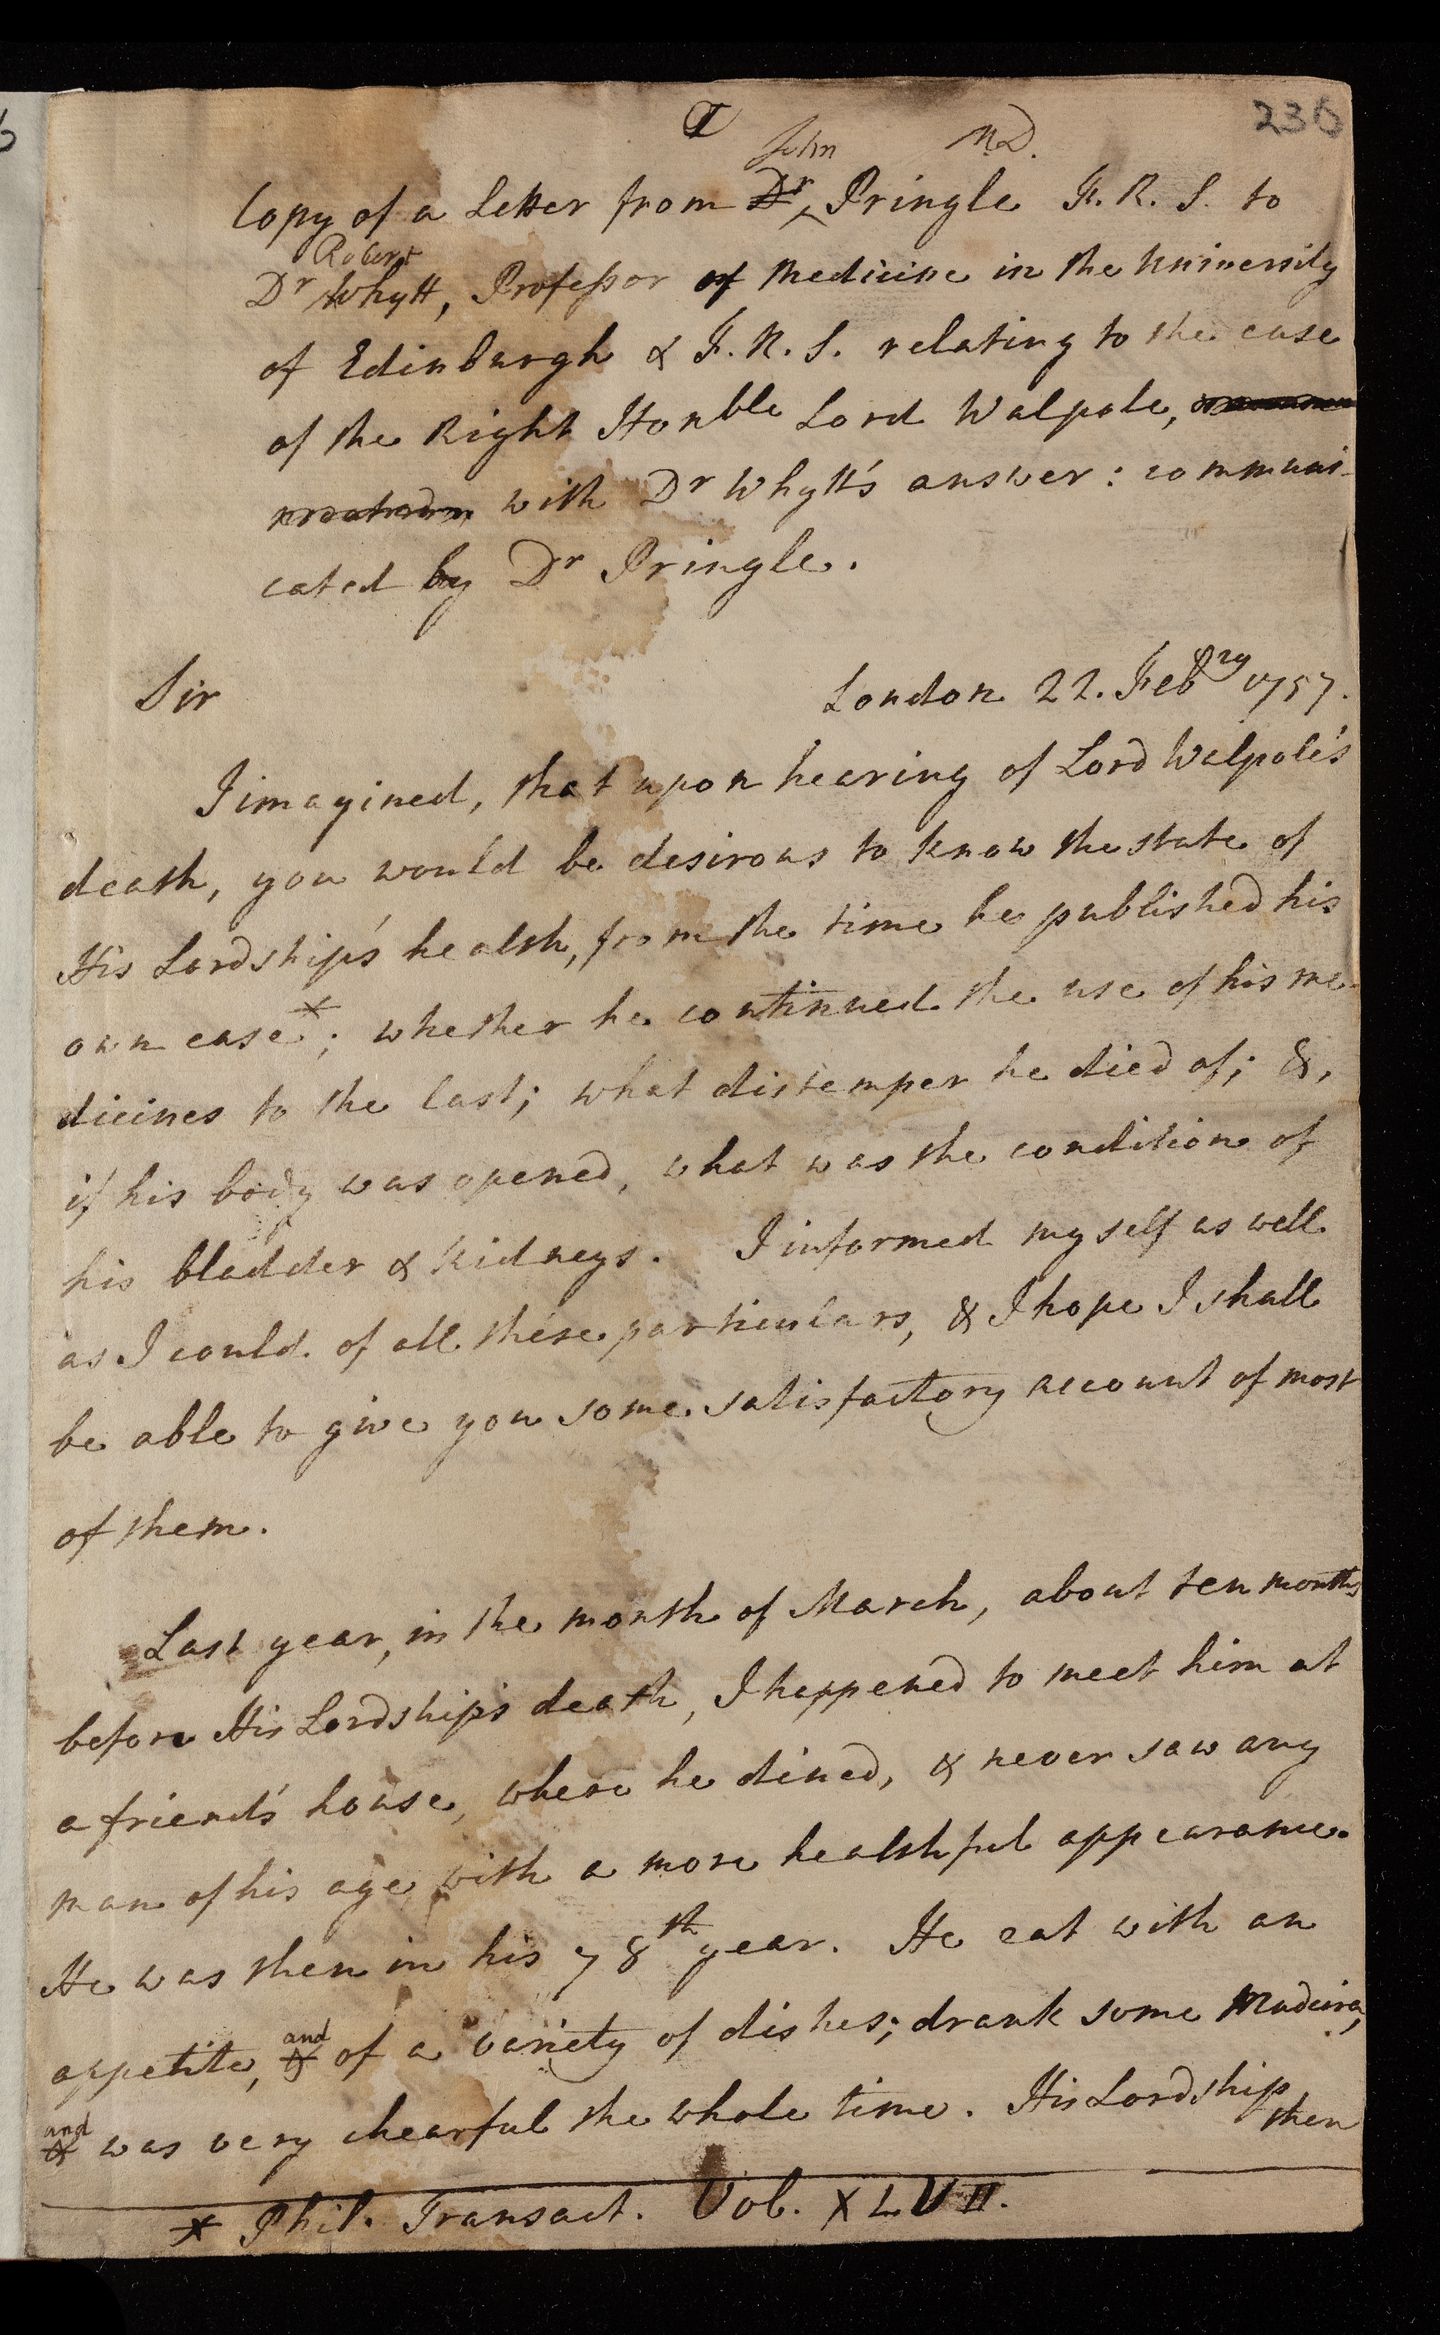 I
236
John M.D.
Copy of a Letter from Dr Pringle F.R.S. to
Robert
Dr Whytt, Professor of Medicine in the University
of Edinburgh & F.R.S. relating to the case
of the Right Honble Lord Walpole,
with Dr Whytt's answer: communi-
cated by Dr Pringle.
Sir
London 22. Febry 1757.
I imagined, that upon hearing of Lord Walpole's
death, you would be desirous to know the state of
His Lordship's health, from the time he published his
own case*; whether he continued the use of his me-
dicines to the last; what distemper he died of; &,
if his body was opened, what was the condition of
his bladder & kidneys. I informed myself as well
as I could of all these particulars, & I hope I shall
be able to give you some satisfactory account of most
of them.
Last year, in the month of March, about ten months
before His Lordship's death, I happened to meet him at
a friend's house, where he dined, & never saw any
man of his age with a more healthful appearance.
He was then in his 78th year. He eat with an
appetite, & and of a variety of dishes; drank some Madeira,
& and was very chearful the whole time. His Lordship
then
* Phil. Transact. Vol. XLVII.